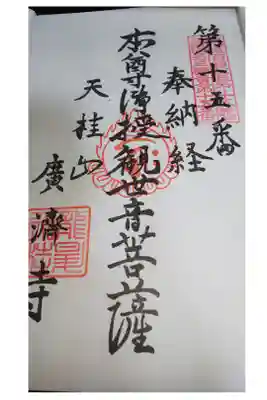 第十五番
奉納経
本尊浄授観世音菩薩
天桂山
廣濟寺